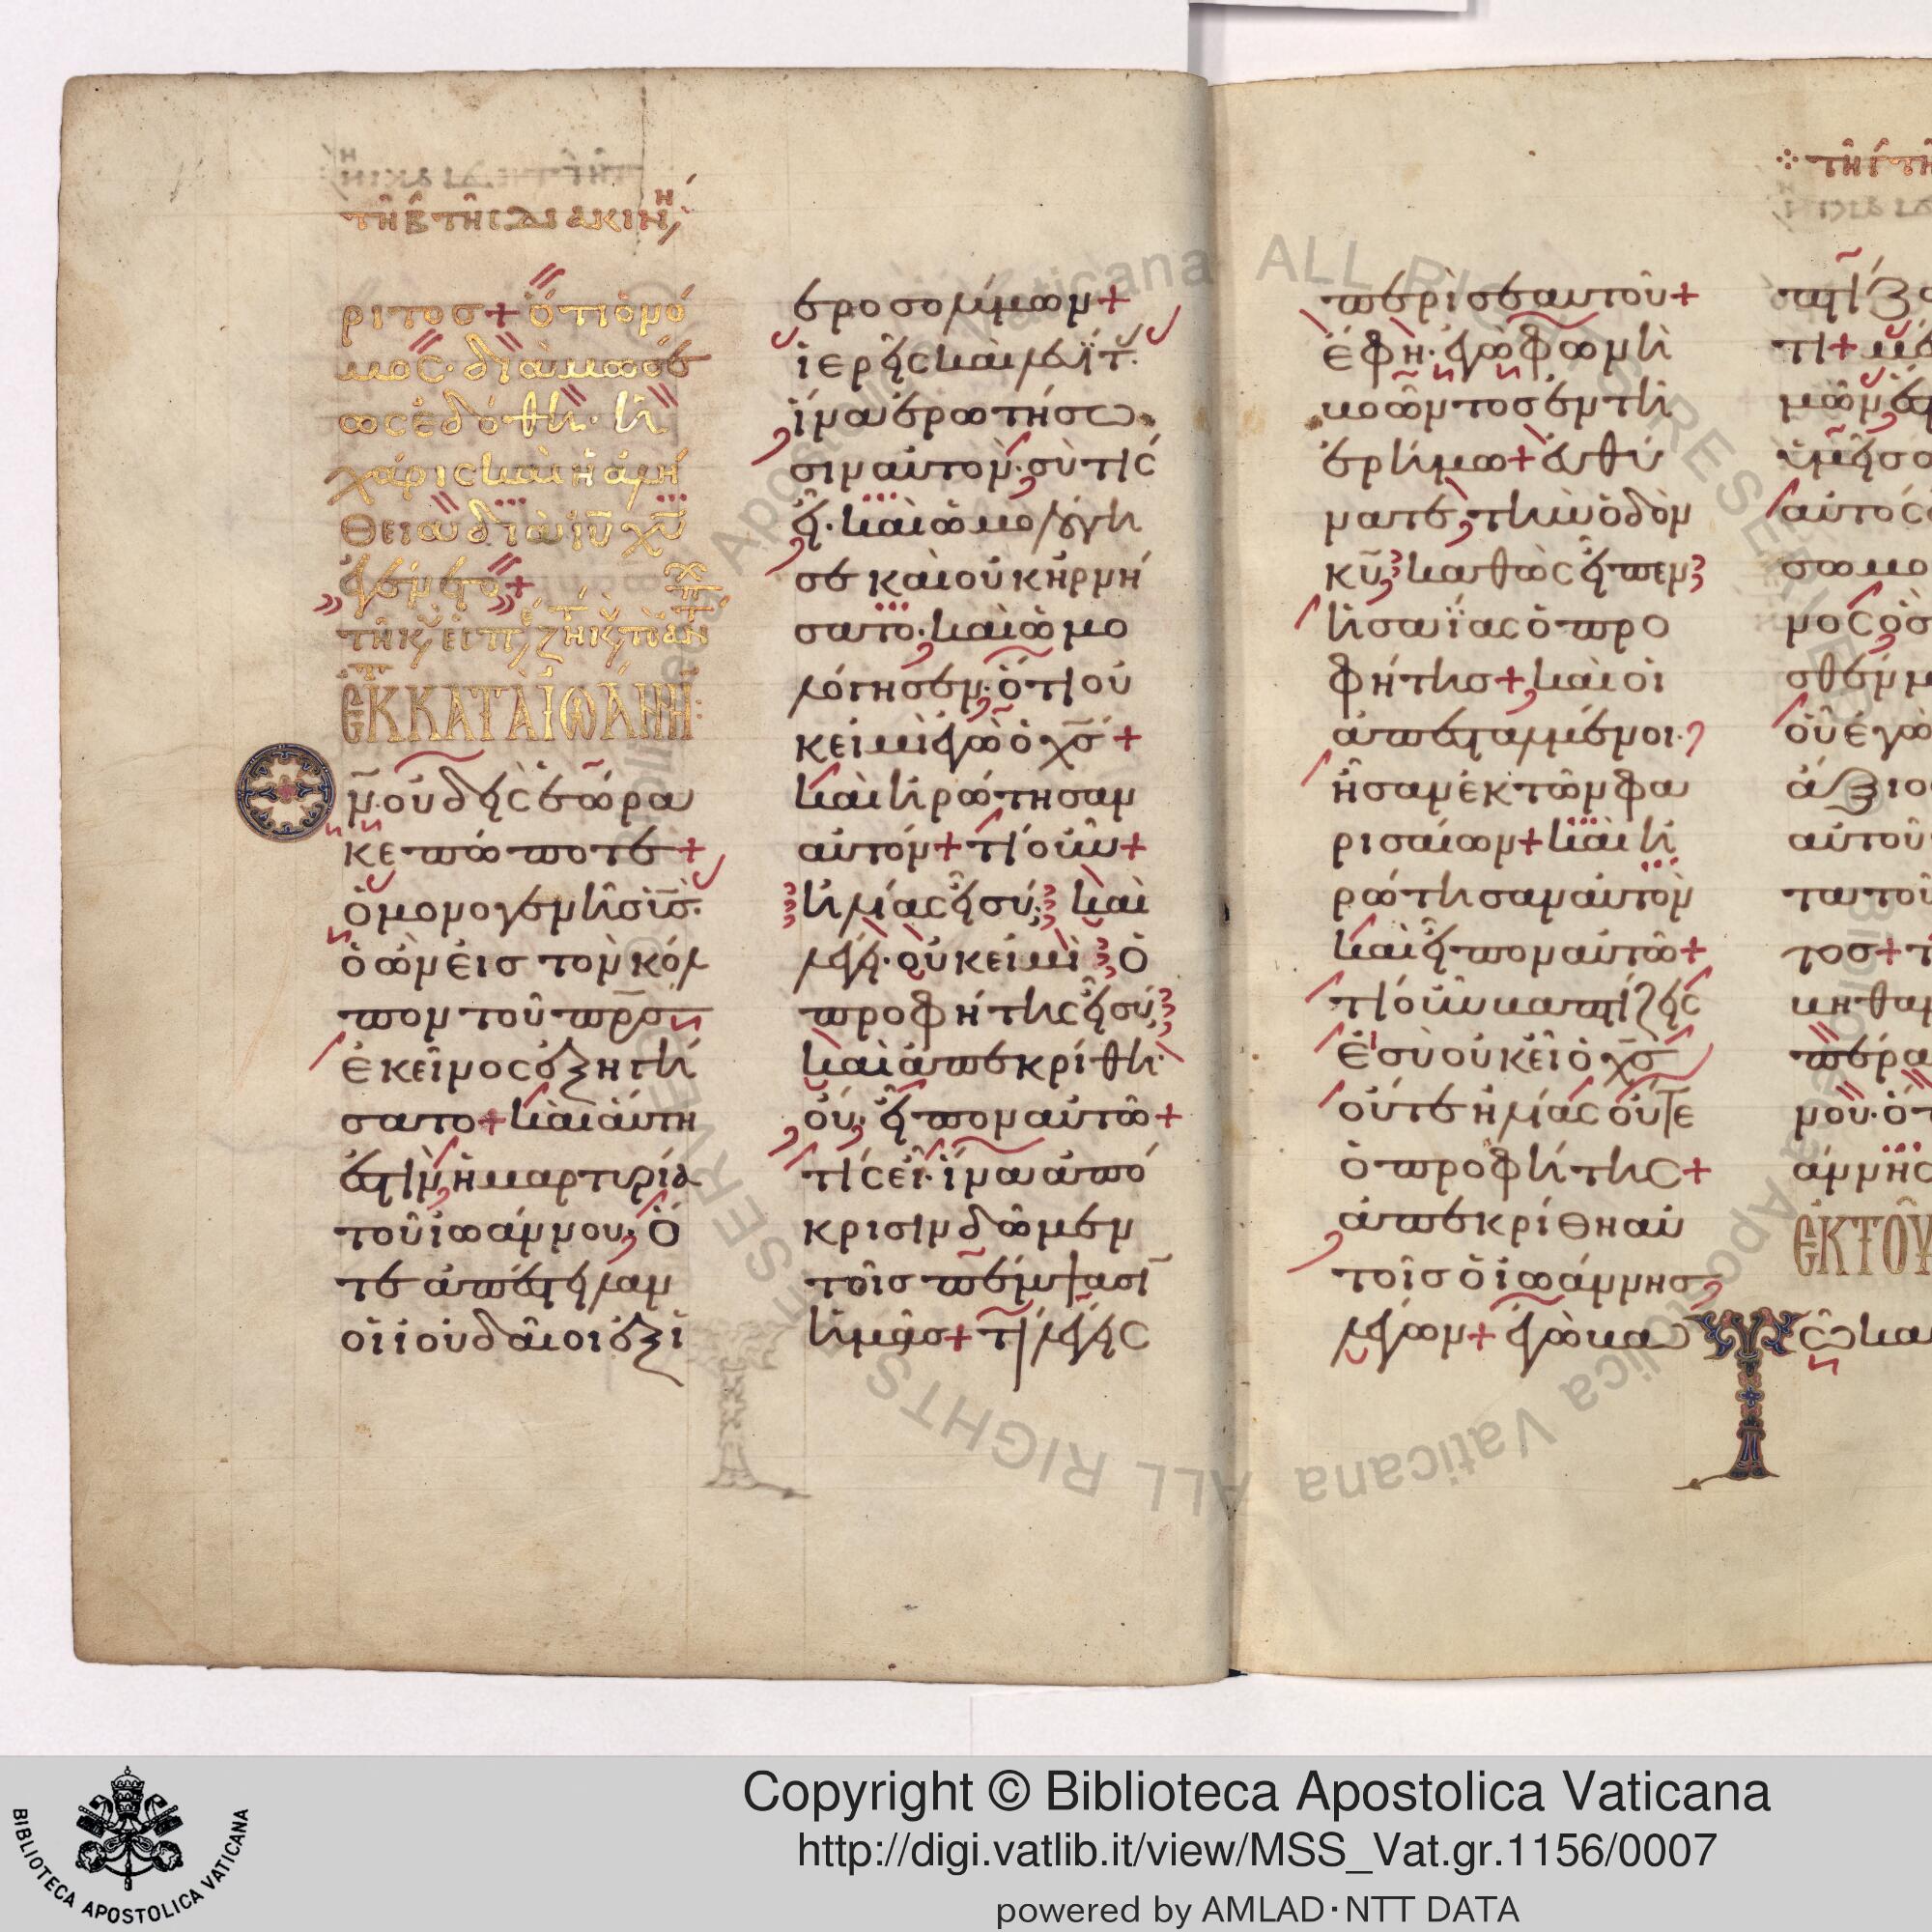 τῆ β τῆς διακινη
ριτος + ὅτι ὁ νό
μος· διὰ μωσέ
ως ἐδόθη· ἡ
χάρις καὶ ἡ ἀλή
θεια διὰ ιυ χυ
ἐγένετο +
ἐκ κατὰ ἰωάννη
Θν οὐδεὶς ἑώρα
κε πώποτε +
ὁ μονογενὴς ισ·
ὁ ὢν εἰς τὸν κόλ
πον τοῦ πρσ
ἐκεῖνος ἐξηγή
σατο + καὶ αὕτη
ἐστὶν ἡ μαρτυρία
τοῦ ἰωάννου, ὅ
τε ἀπέστειλαν
οἱ ἰουδαῖοι ἐξ ἱ
εροσολύμων +
ἱερεῖς καὶ λευΐτ·
ἵνα ἐρωτήσω
σιν αὐτόν· σὺ τίς
εἶ· καὶ ὡμολόγη
σε καὶ οὐκ ἠρνή
σατο· καὶ ὡμο
λόγησεν· ὅτι οὐ
κ εἰμὶ ἐγὼ ὁ χσ +
καὶ ἠρώτησαν
αὐτόν + τί οὖν +
ἠλίας εἶ σύ; καὶ
λέγει· οὐκ εἰμὶ ὁ
προφήτης εἶ σύ;
καὶ ἀπεκρίθη·
οὔ· εἶπον αὐτῶ +
τίς εἶ· ἵνα ἀπό
κρισιν δῶμεν
τοῖς πέμψασιν
ἡμᾶς + τί λέγεις
περὶ σεαυτοῦ +
ἔφη· ἐγὼ φωνὴ
βοῶντος ἐν τῆ
ἐρήμω + εὐθύ
νατε τὴν ὁδὸν
κυ καθὼς εἶπεν
ἡσαΐας ὁ προ
φήτης + καὶ οἱ
ἀπεσταλμένοι·
ἦσαν ἐκ τῶν φα
ρισαίων + καὶ ἠ
ρώτησαν αὐτὸν
καὶ εἶπον αὐτῶ +
τί οὖν βαπτίζεις
εἰ σὺ οὐκ εἶ ὁ χσ
οὔτε ἠλίας οὔτε
ὁ προφήτης +
ἀπεκρίθη αὐ
τοῖς ὁ ἰωάννης
λέγων + ἐγὼ βα
τῆ γ τῆ
πτίζω
τι + μέ
αὐτὸς
νος ὃς
οὗ ἐγὼ
ἄξιος
αὐτοῦ
τοῦ
τος + τ
βηθαν
πέρα
νου· ὅπ
ἐκ τοῦ
Τῶ και
Copyright © Biblioteca Apostolica Vaticana
http://digi.vatlib.it/view/MSS_Vat.gr.1156/0007
powered by AMLAD·NTT DATA
BIBLIOTECA APOSTOLICA VATICANA